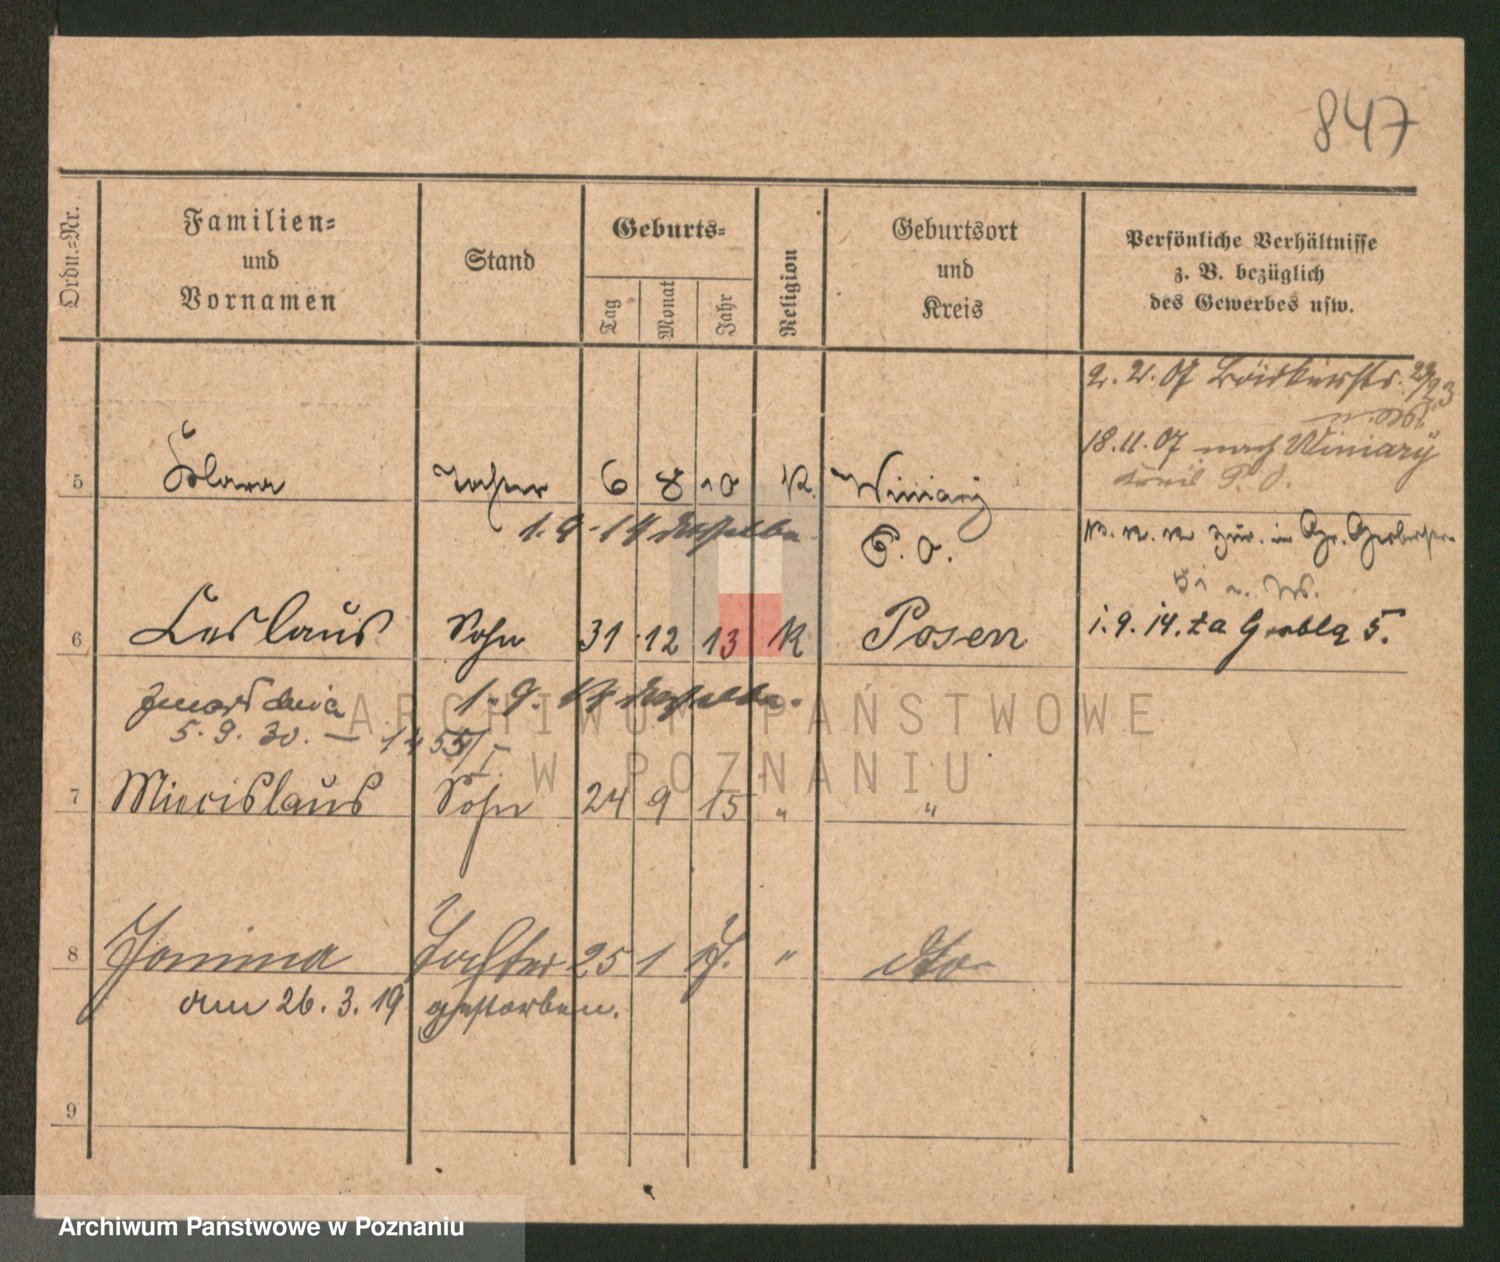 847
Ordn.-Nr.
Familien-
und
Vornamen
Stand
Geburts-
Tag
Monat
Jahr
Religion
Geburtsort
und
Kreis
Persönliche Verhältnisse
z. B. bezüglich
des Gewerbes usw.
2. 2. 07 Bäckerstr. 22/23
18.11.07 nach Winiary
5 Tochter 6 8 10 K. Winiary
P. O.
1. 9. 14 dasselbe
6 Ceslaus Sohn 31 12 13 K Posen
1. 9. 14. Grobla 5.
1. 9. 17 dasselbe.
5. 9. 30. —
7 Miecislaus Sohn 24 9 15 " "
8 Janina Tochter 25 1 " dto
am 26. 3. 19 gestorben.
9
ARCHIWUM PAŃSTWOWE
W POZNANIU
Archiwum Państwowe w Poznaniu